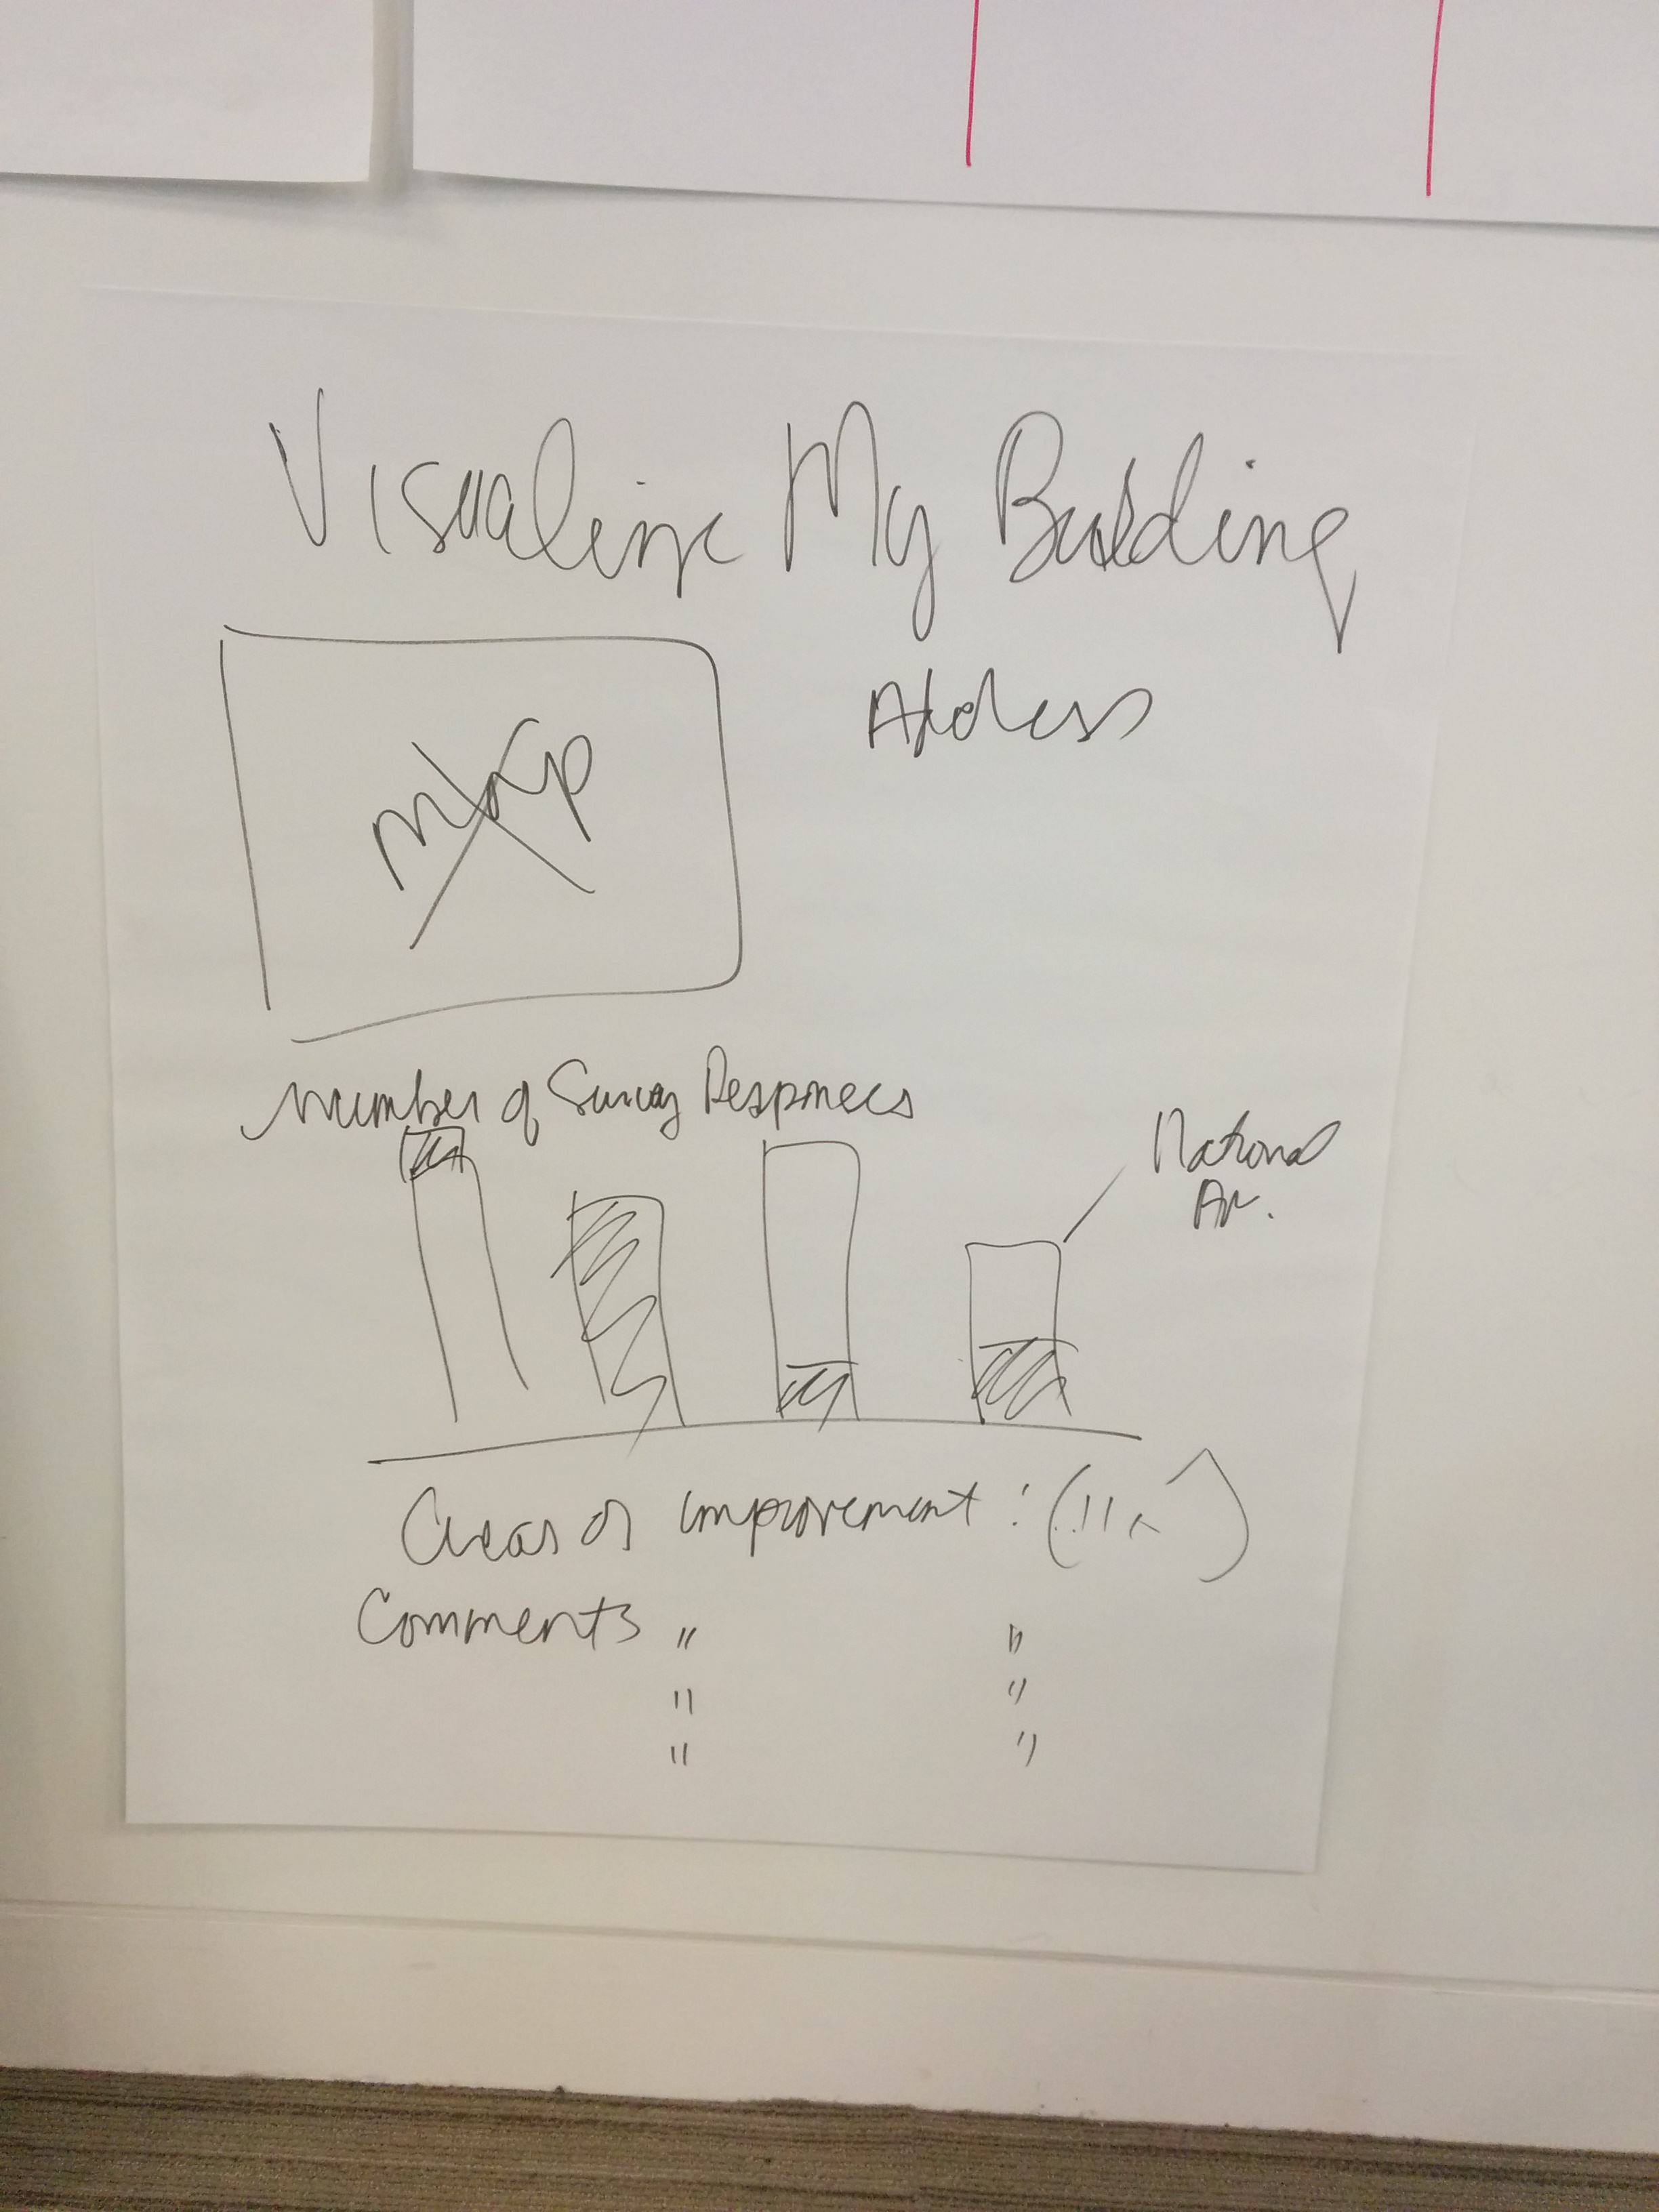 Visualize My Building
Address
map
Number of Survey Responses
National
Av.
Areas of improvement : (
Comments " "
" "
" "